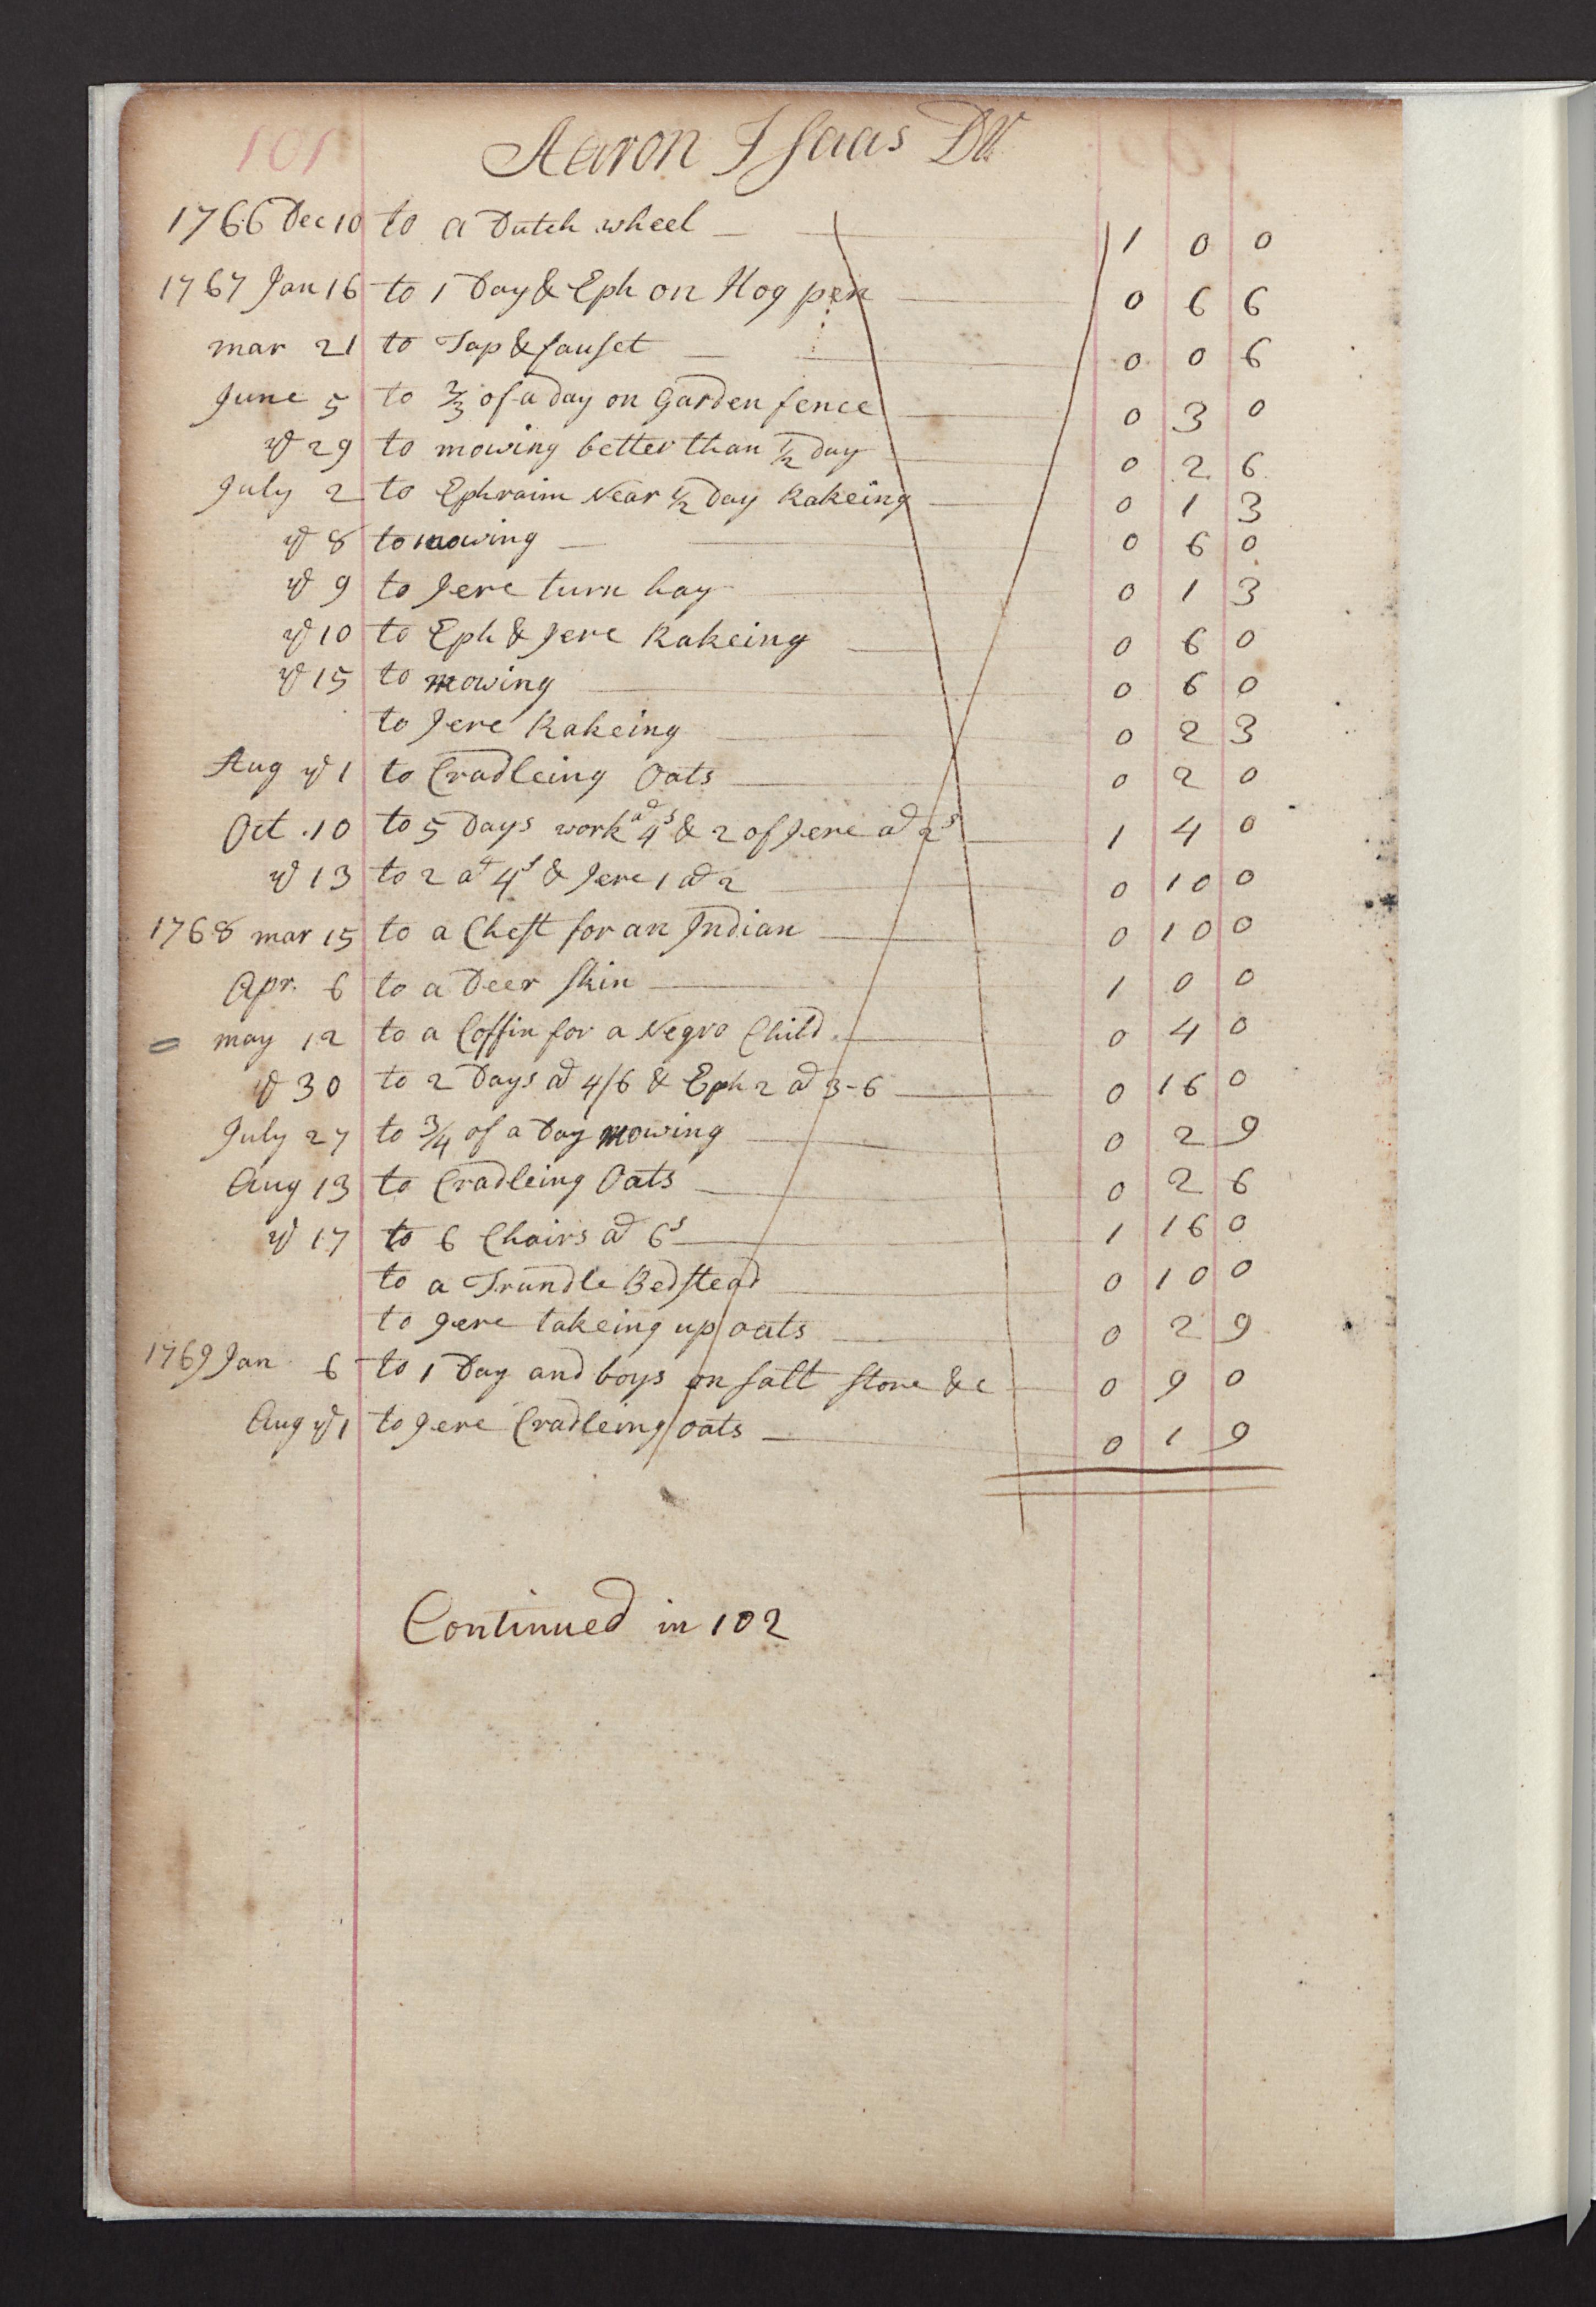 101 Aaron Isaas Dr
1766 Dec 10 to a Dutch wheel 1 0 0
1767 Jan 16 to 1 Day & Eph on Hog pen 0 6 6
mar 21 to Tap & fauset 0 0 6
June 5 to 2/3 of a day on Garden fence 0 3 0
ye 29 to mowing better than 1/2 day 0 2 6
July 2 to Ephraim Near 1/2 Day Rakeing 0 1 3
ye 8 to mowing 0 6 0
ye 9 to Jere turn hay 0 1 3
ye 10 to Eph & Jere Rakeing 0 6 0
ye 15 to mowing 0 6 0
to Jere Rakeing 0 2 3
Aug ye 1 to Cradleing Oats 0 2 0
Oct. 10 to 5 Days work ad 4s & 2 of Jere ad 2s 1 4 0
ye 13 to 2 ad 4s & Jere 1 ad 2 0 10 0
1768 mar 15 to a Chest for an Indian 0 10 0
Apr. 6 to a Deer skin 1 0 0
= may 12 to a Coffin for a Negro Child 0 4 0
ye 30 to 2 Days ad 4/6 & Eph 2 ad 3-6 0 16 0
July 27 to 3/4 of a Day mowing 0 2 9
Aug 13 to Cradleing Oats 0 2 6
ye 17 to 6 Chairs ad 6s 1 16 0
to a Trundle Bedstead 0 10 0
to Jere takeing up oats 0 2 9
1769 Jan 6 to 1 Day and boys on salt store &c 0 9 0
Aug ye 1 to Jere Cradleing oats 0 1 9
Continued in 102